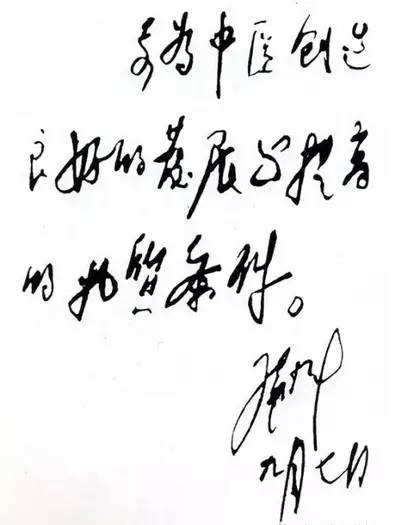 要为中医创造
良好的发展与提高
的物质条件。
九月七日